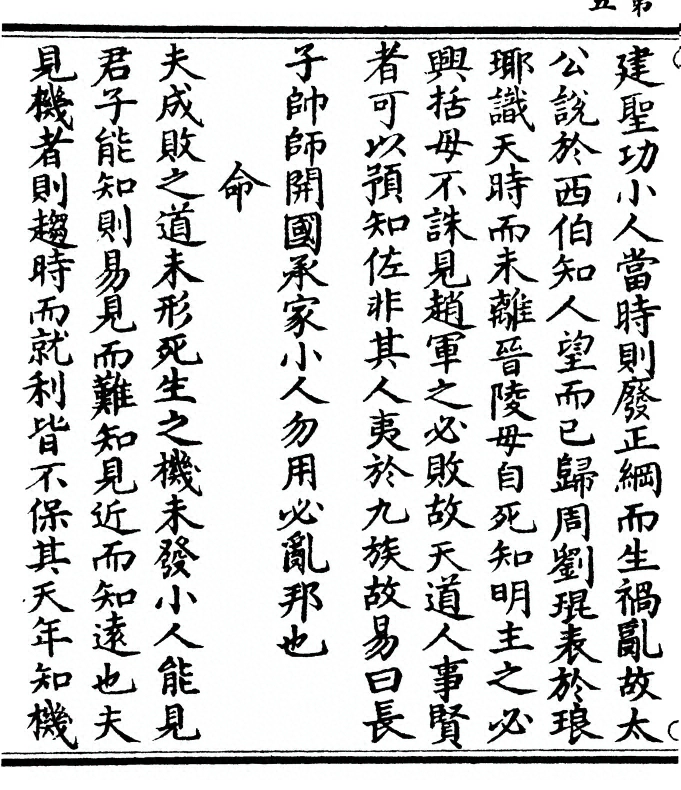 第五
建聖功小人當時則廢正綱而生禍亂故太
公說於西伯知人望而已歸周劉琨表於琅
瑘識天時而未離晉陵母自死知明主之必
興括母不誅見趙軍之必敗故天道人事賢
者可以預知佐非其人夷於九族故易曰長
子帥師開國承家小人勿用必亂邦也
命
夫成敗之道未形死生之機未發小人能見
君子能知則易見而難知見近而知遠也夫
見機者則趨時而就利皆不保其天年知機